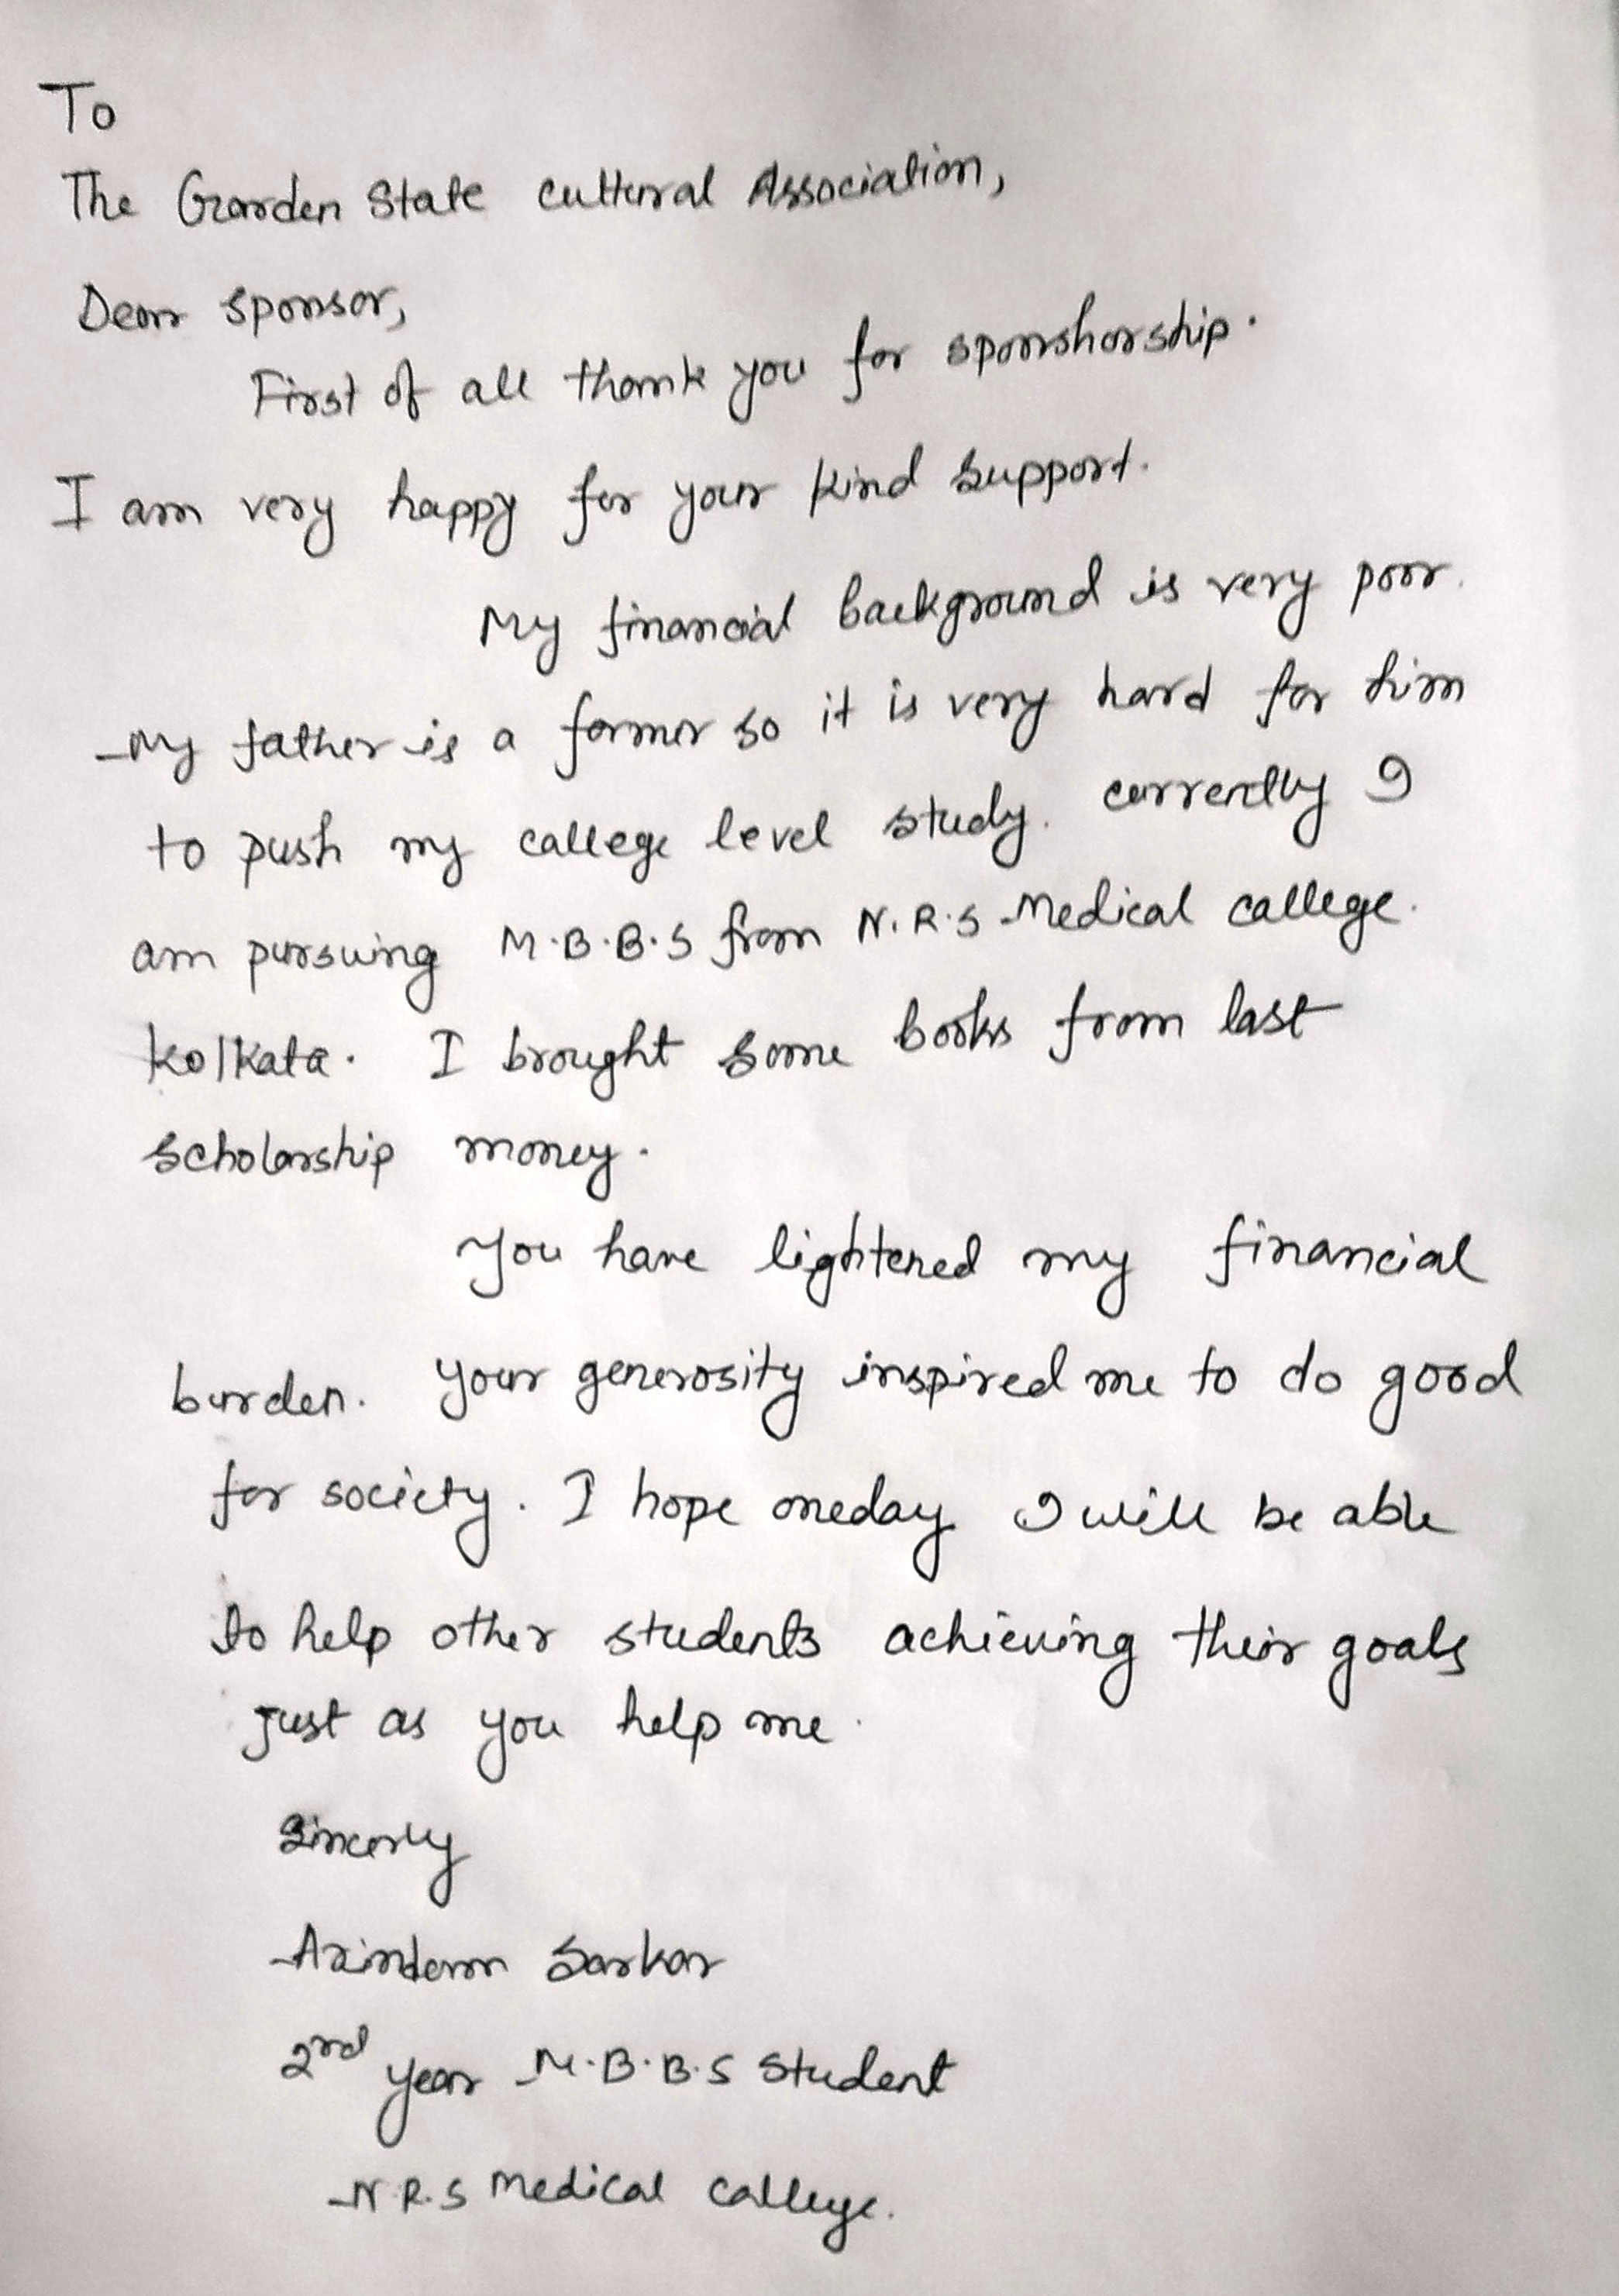 To
The Garden State Cultural Association,
Dear Sponsor,
First of all thank you for sponshorship.
I am very happy for your kind support.
My financial background is very poor.
My father is a farmer so it is very hard for him
to push my college level study. currently I
am pursuing M.B.B.S from N.R.S Medical college.
Kolkata. I brought some books from last
scholarship money.
You have lightened my financial
burden. your generosity inspired me to do good
for society. I hope oneday I will be able
to help other students achieving their goals
just as you help me.
Sincerly
Arindam Sarkar
2nd year M.B.B.S Student
N.R.S Medical College.